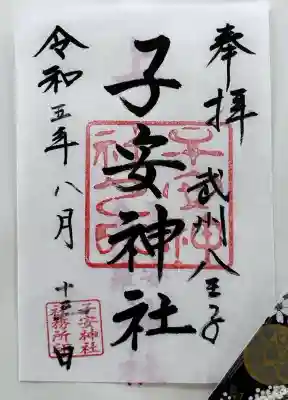 奉拝
武州八王子
子安神社
令和五年八月十五日
子安神社
社務所印